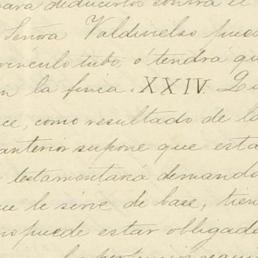 para deducirlos contra el
Señora Valdivielso pue
vínculo tubo, ó tendrá qu
n la finca. XXIV. Qu
ce, como resultado de la
anterior supone que esta
testamentaria demanda
ue le sirve de base, tien
no puede estar obligad